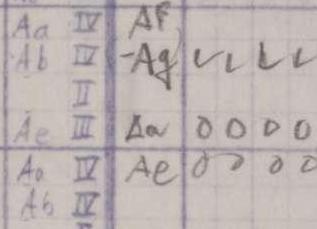 Aa IV Af
Ab IV -Ag ✓ ✓ ✓ ✓
II
Ae III Aa 0 0 0 0
Aa IV Ae 0 0 0 0
Ab IV